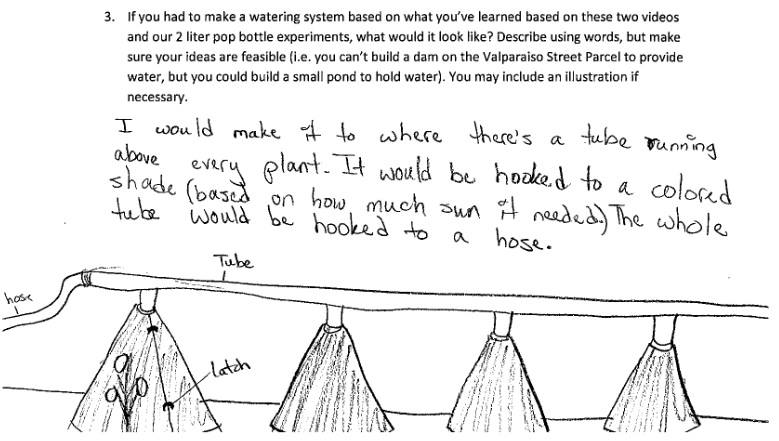 3. If you had to make a watering system based on what you've learned based on these two videos
and our 2 liter pop bottle experiments, what would it look like? Describe using words, but make
sure your ideas are feasible (i.e. you can't build a dam on the Valparaiso Street Parcel to provide
water, but you could build a small pond to hold water). You may include an illustration if
necessary.
I would make it to where there's a tube running
above every plant. It would be hooked to a colored
shade (based on how much sun it needed.) The whole
tube would be hooked to a hose.
Tube
hose
latch